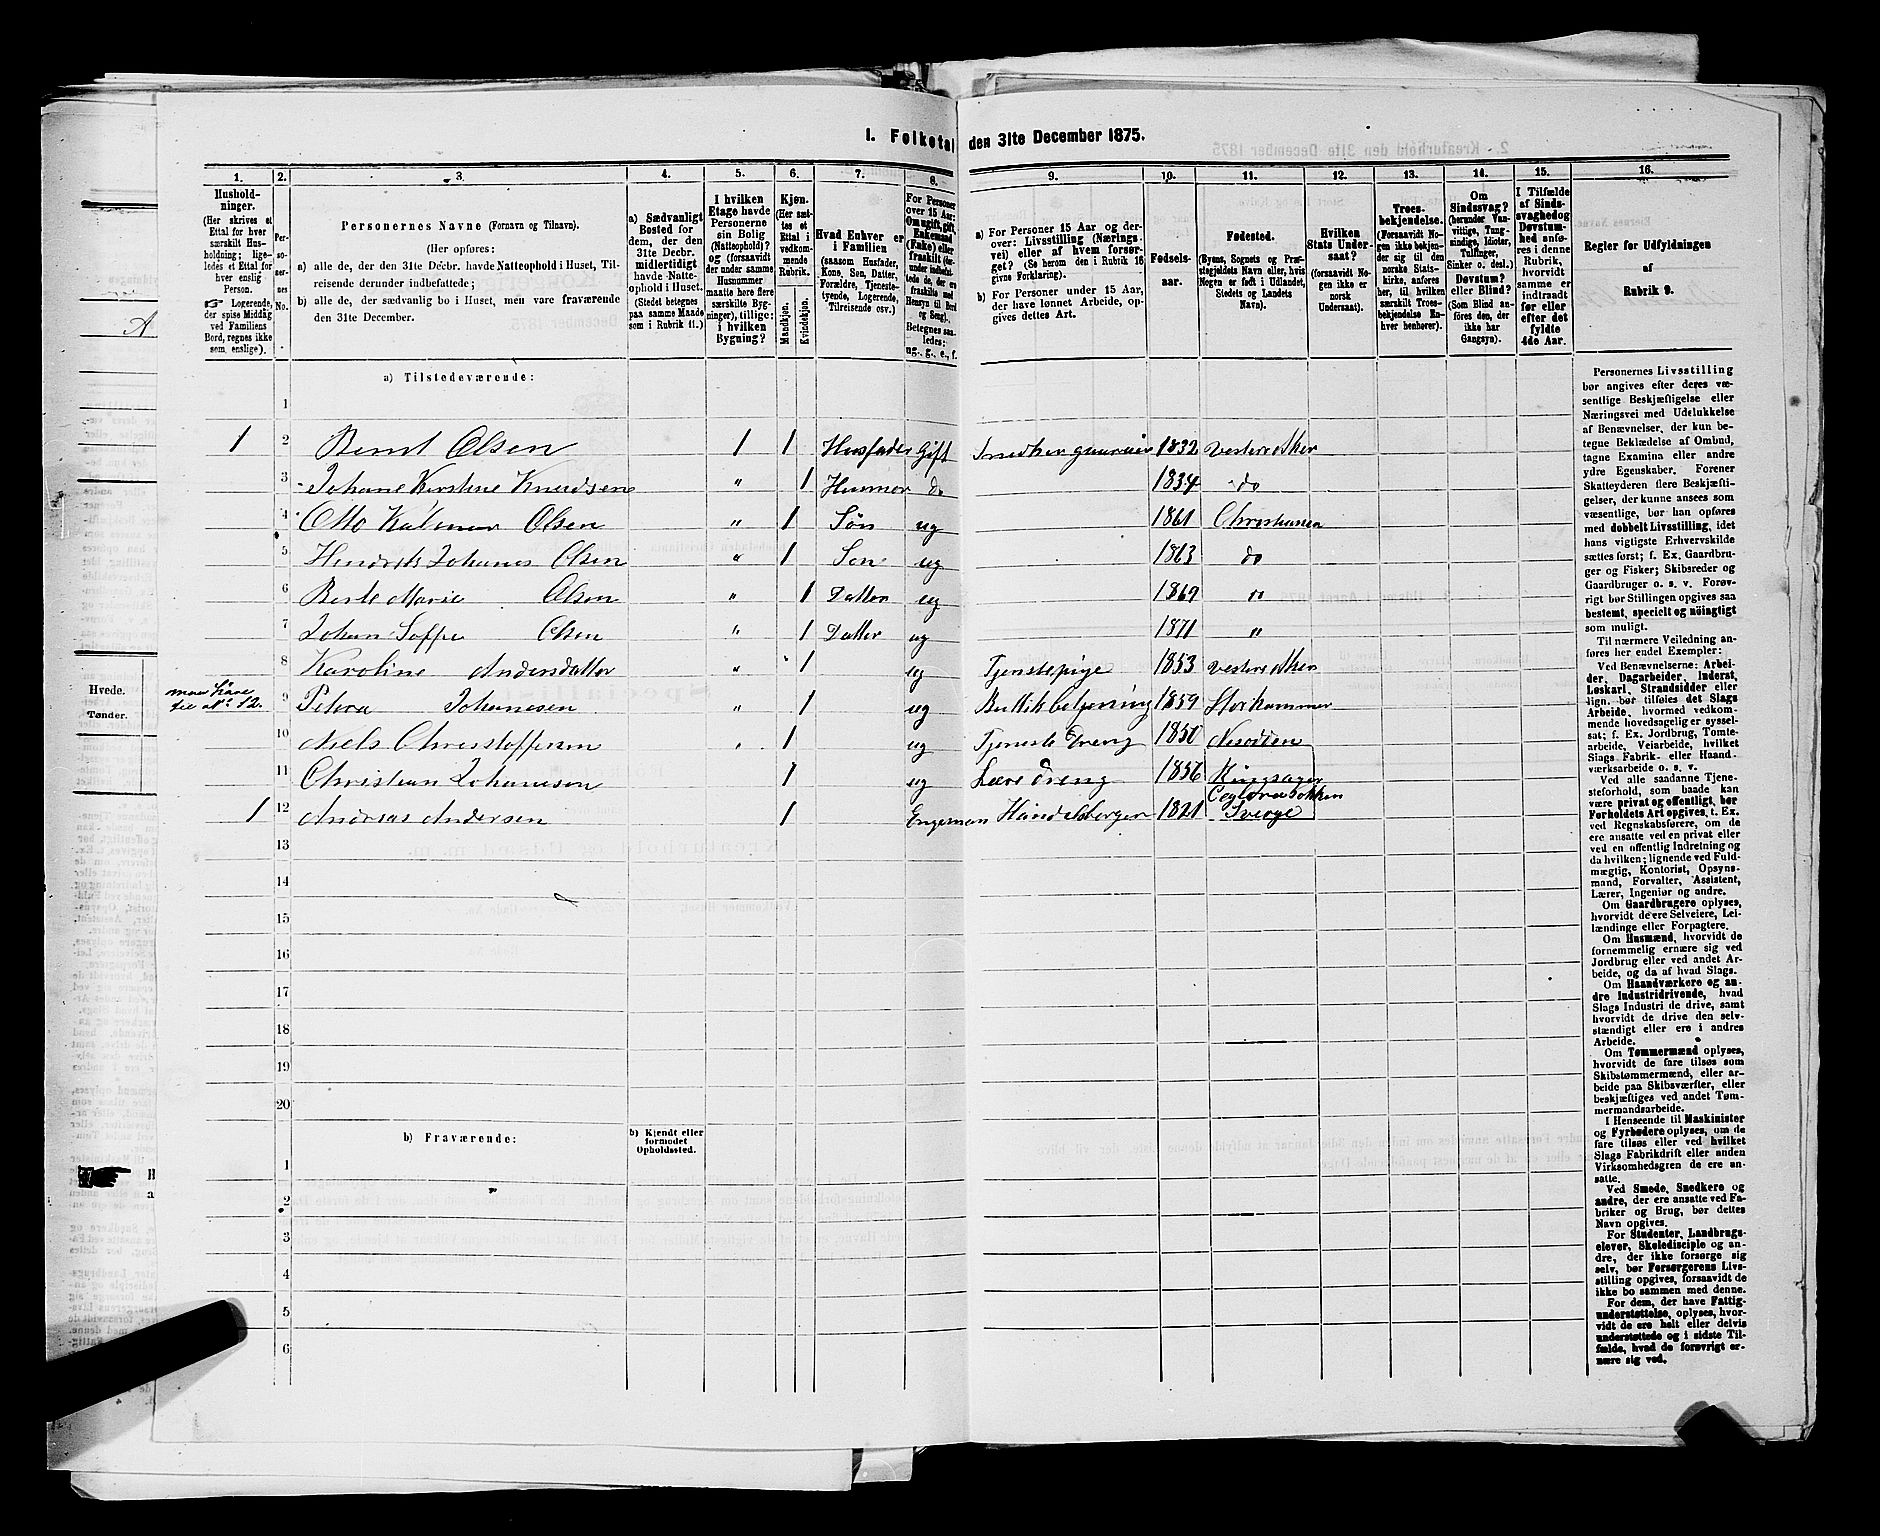 1. Folketal den 31te December 1875.
1. 2. 3. 4. 5. 6. 7. 8. 9. 10. 11. 12. 13. 14. 15. 16.
Hushold-
ninger.
(Her skrives et
Ettal for hver
særskilt Hus-
holdning; lige-
ledes et Ettal for
hver enslig
Person.
☞ Logerende,
der spise Middag
ved Familiens
Bord, regnes ikke
som enslige).
Per-
so-
ner-
nes
No.
Personernes Navne (Fornavn og Tilnavn).
(Her opføres:
a) alle de, der den 31te Decbr. havde Natteophold i Huset, Til-
reisende derunder indbefattede;
b) alle de, der sædvanlig bo i Huset, men vare fraværende
den 31te December.
a) Sædvanligt
Bosted for
dem, der den
31te Decbr.
midlertidigt
havde Natte-
ophold i Huset.
(Stedet betegnes
paa samme Maade
som i Rubrik 11.)
I hvilken
Etage havde
Personerne
sin Bolig
(Natteophold)?
og (forsaavidt
der under samme
Husnummer
maatte høre flere
særskilte Byg-
ninger), tillige:
i hvilken
Bygning?
Kjøn.
(Her sæt-
tes et
Ettal i
vedkom-
mende
Rubrik.
Mandkjøn.
Kvindekjøn.
Hvad Enhver er
i Familien
(saasom Husfader,
Kone, Søn, Datter,
Forældre, Tjeneste-
tyende, Logerende,
Tilreisende osv.)
For Personer
over 15 Aar:
Om ugift, gift,
Enkemand
(Enke) eller
fraskilt
Betegnes saa-
ledes:
ug., g., e., f.
a) For Personer 15 Aar og der-
over: Livsstilling (Nærings-
vei) eller af hvem forsør-
get? (Se herom den i Rubrik 16
givne Forklaring).
b) For Personer under 15 Aar,
der have lønnet Arbeide, op-
gives dettes Art.
Fødsels-
aar.
Fødested.
(Byens, Sognets og Præ-
stegjeldets Navn eller, hvis
Nogen er født i Udlandet,
Stedets og Landets
Navn).
Hvilken
Stats Under-
saat?
(forsaavidt No-
gen ikke er
norsk
Undersaat).
Troes-
bekjendelse.
(Forsaavidt No-
gen ikke bekjen-
der sig til den
norske Stats-
kirke, anføres
her, til hvilken
særskilt Troes-
bekjendelse En-
hver henhører).
Om
Sindssvag?
(herunder Van-
vittige, Tung-
sindige, Idioter,
Tulfinger,
Sinker o. desl.)
Døvstum?
eller Blind?
(Som Blind an-
føres den, der
ikke har
Gangsyn).
I Tilfælde
af Sinds-
svaghed og
Døvstum-
hed anfø-
res i denne
Rubrik,
hvorvidt
samme er
indtraadt
før eller
efter det
fyldte
4de Aar.
Regler for Udfyldningen
af
Rubrik 9.
a) Tilstedeværende:
1
1 2 Bernt Olsen 1 1 Husfader Gift 1832
3 Johane Kirstine Knudsen " 1 Husmor do 1834 do
4 Otto Kalmer Olsen " 1 Søn ug 1861 Christiania
5 Hendrik Johanes Olsen " 1 Søn ug 1863 do
6 Berte Marie Olsen " 1 Datter ug 1869 "
7 Johan Soffie Olsen " 1 Datter ug 1871 "
8 Karoline Andersdatter " 1 ug Tjenestepige 1853
9 Petera Johanesen " 1 ug 1859 Storhammer
10 Niels Christoffersen " 1 ug Tjeneste dreng 1850 Nesodden
11 Christian Johanesen 1 ug Lære dreng 1856 Ringsager
1 12 Andreas Andersen 1 Enkeman 1821 Sverge
13
14
15
16
17
18
19
20
b) Fraværende:
b) Kjendt eller
formodet
Opholdssted.
1
2
3
4
5
6
Personernes Livsstilling
bør angives efter deres væ-
sentlige Beskjæftigelse eller
Næringsvei med Udelukkelse
af Benævnelser, der kun be-
tegne Beklædelse af Ombud,
tagne Examina eller andre
ydre Egenskaber. Forener
Skatteyderen flere Beskjæfti-
gelser, der kunne ansees som
væsentlige, bør han opføres
med dobbelt Livsstilling, idet
hans vigtigste Erhvervskilde
sættes først; f. Ex. Gaardbru-
ger og Fisker; Skibsreder og
Gaardbruger o. s. v. Forøv-
rigt bør Stillingen opgives saa
bestemt, specielt og nöiagtigt
som muligt.
Til nærmere Veiledning an-
føres her endel Exempler:
Ved Benævnelserne: Arbei-
der, Dagarbeider, Inderst,
Løskarl, Strandsidder eller
lign. bør tilføies det Slags
Arbeide, hvormed vedkom-
mende hovedsagelig er syssel-
sat; f. Ex. Jordbrug, Tomte-
arbeide, Veiarbeide, hvilket
Slags Fabrik- eller Haand-
værksarbeide o. s. v.
Ved alle saadanne Tjene-
steforhold, som baade kan
være privat og offentligt, bør
Forholdets Art opgives, t. Ex.
ved Regnskabsførere, om de
ere ansatte ved en privat eller
ved en offentlig Indretning og
da hvilken; lignende ved Fuld-
mægtig, Kontorist, Opsyns-
mand, Forvalter, Assistent,
Lærer, Ingeniør og andre.
Om Gaardbrugere oplyses,
hvorvidt de ere Selveiere, Lei-
lændinge eller Forpagtere.
Om Husmænd, hvorvidt de
fornemmelig ernære sig ved
Jordbrug eller ved andet Ar-
beide, og da af hvad Slags.
Om Haandværkere og an-
dre Industridrivende, hvad
Slags Industri de drive, samt
hvorvidt de drive den selv-
stændigt eller ere i andres
Arbeide.
Om Tømmermænd oplyses,
hvorvidt de fare tilsøs som
Skibstømmermænd, eller ar-
beide paa Skibsværfter, eller
beskjæftiges ved andet Tøm-
mermandsarbeide.
I Henseende til Maskinister
og Fyrbødere oplyses, om de
fare tilsøs eller ved hvilket
Slags Fabrikdrift eller anden
Virksomhedsgren de ere an-
satte.
Ved Smede, Snedkere og
andre, der ere ansatte ved Fa-
briker og Brug, bør dettes
Navn opgives.
For Studenter, Landbrugs-
elever, Skoledisciple og an-
dre, der ikke forsørge sig
selv, bør Forsørgerens Livs-
stilling opgives, forsaavidt de
ikke bo sammen med denne.
For dem, der have Fattig-
understøttelse, oplyses, hvor-
vidt de ere helt eller delvis
understøttede og i sidste Til-
fælde, hvad de forøvrigt er-
nære sig ved.
Hvede.
Tønder.